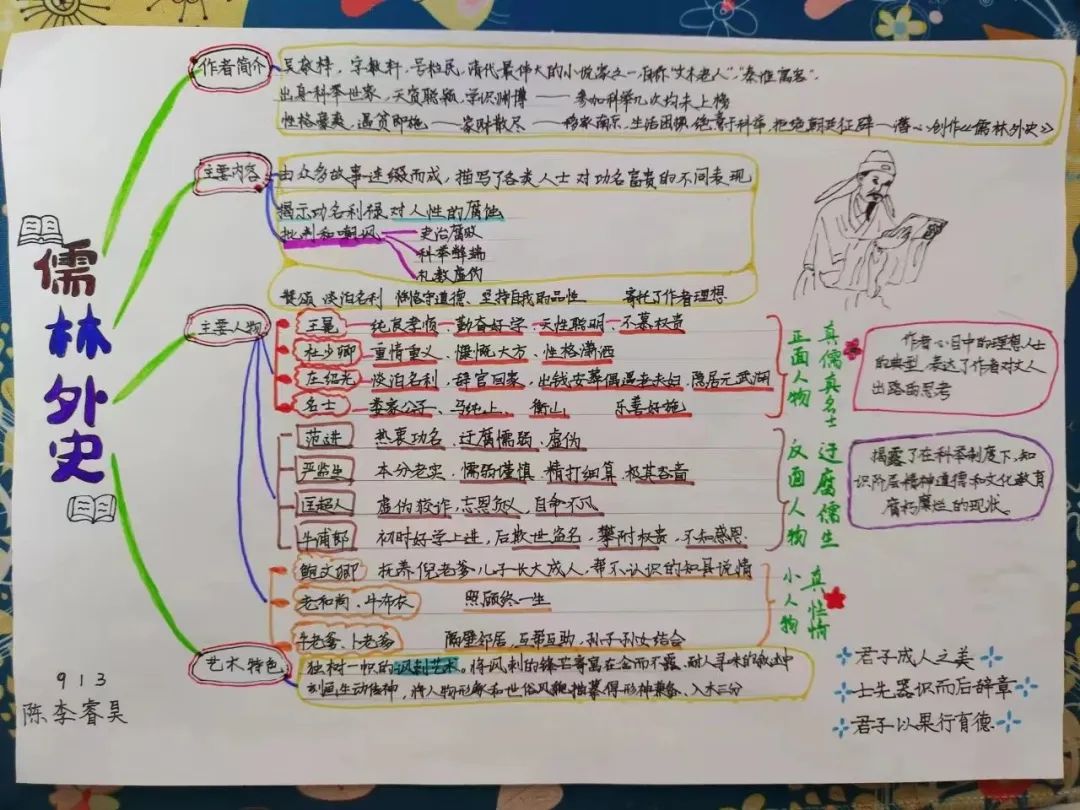 儒林外史
作者简介
吴敬梓，字敏轩，号粒民，清代最伟大的小说家之一，自称"文木老人"，"秦淮寓客"．
出身科举世家，天资聪颖，学识渊博 —— 参加科举几次均未上榜
性格豪爽，遇贫即施 —— 家财散尽 —— 移家南京，生活困顿，绝意于科举，拒绝朝廷征辟—潜心创作《儒林外史》
主要内容
由众多故事连缀而成，描写了各类人士对功名富贵的不同表现
揭示功名利禄对人性的腐蚀
批判和嘲讽
吏治腐败
科举弊端
礼教虚伪
赞颂 淡泊名利 恪守道德、坚持自我的品性 寄托了作者理想
主要人物
王冕 纯良孝悌 勤奋好学 天性聪明 不慕权贵
杜少卿 重情重义、慷慨大方、性格潇洒
庄绍光 淡泊名利，辞官回家，出钱安葬偶遇老夫妇，隐居元武湖
名士 娄家公子、马纯上、 衡山 乐善好施
正面人物
真儒真名士
作者心目中的理想人士的典型，表达了作者对文人出路的思考
范进 热衷功名、迂腐懦弱、虚伪
严监生 本分老实、懦弱谨慎、精打细算、极其吝啬
匡超人 虚伪狡诈，忘恩负义，自命不凡
牛浦郎 初时好学上进，后欺世盗名，攀附权贵，不知感恩．
反面人物
迂腐儒生
揭露了在科举制度下，知识阶层精神道德和文化教育腐朽糜烂的现状。
鲍文卿 抚养倪老爹儿子长大成人，帮不认识的知县说情
老和尚、牛布衣 照顾终一生
牛老爹、卜老爹 隔壁邻居，互帮互助，孙子孙女结合
小人物
真性情
艺术特色
独树一帜的讽刺艺术。将讽刺的锋芒寄寓在含而不露、耐人寻味的叙述中
刻画生动传神，将人物形象和世俗风貌描摹得形神兼备、入木三分
君子成人之美
士先器识而后辞章
君子以果行育德
913
陈李睿昊